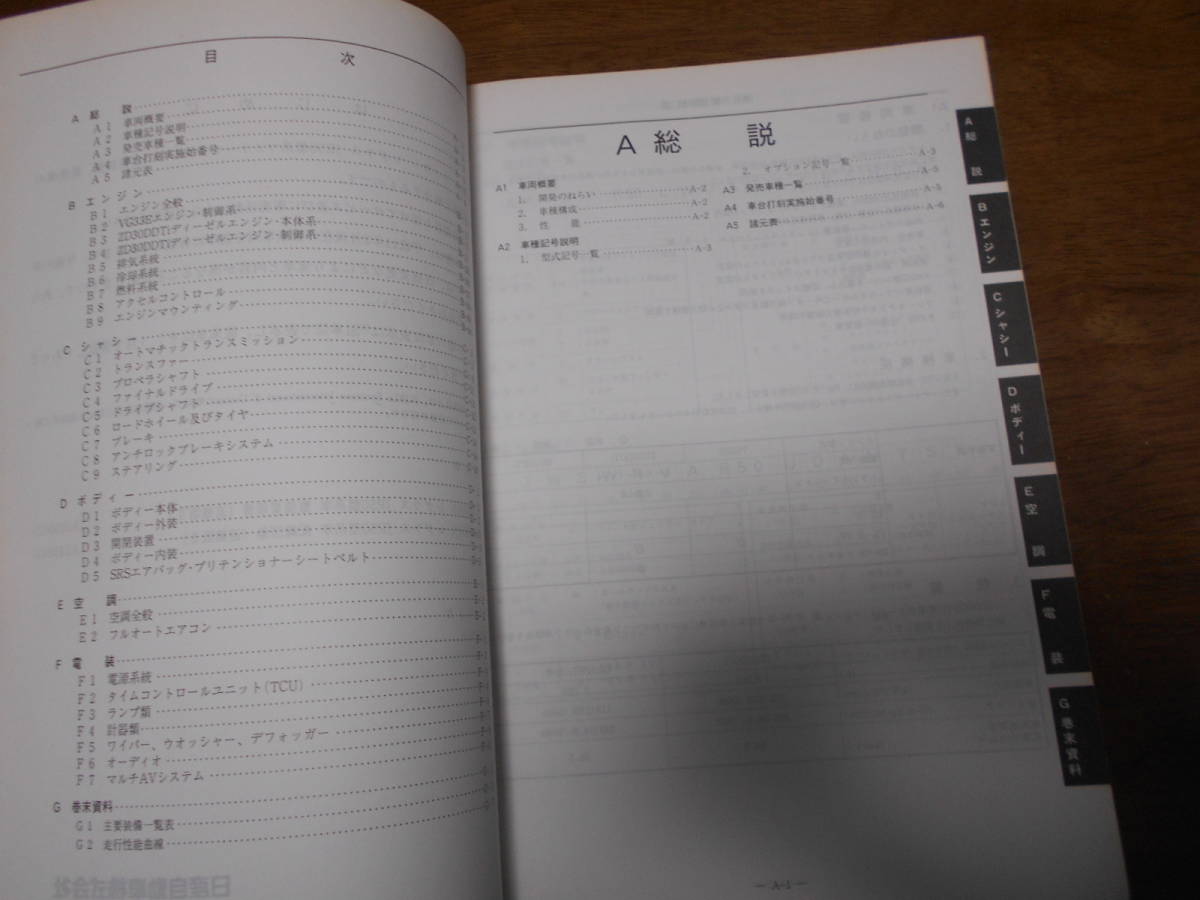 目 次
A 総 説
A1 車両概要
A2 車種記号説明
A3 発売車種一覧
A4 車台打刻実施始番号
A5 諸元表
B エンジン
B1 エンジン全般
B2 VG33Eエンジン・制御系
B3 ZD30DDTiディーゼルエンジン・本体系
B4 ZD30DDTiディーゼルエンジン・制御系
B5 排気系統
B6 冷却系統
B7 燃料系統
B8 アクセルコントロール
B9 エンジンマウンティング
C シャシー
C1 オートマチックトランスミッション
C2 トランスファー
C3 プロペラシャフト
C4 ファイナルドライブ
C5 ドライブシャフト
C6 ロードホイール及びタイヤ
C7 ブレーキ
C8 アンチロックブレーキシステム
C9 ステアリング
D ボディー
D1 ボディー本体
D2 ボディー外装
D3 開閉装置
D4 ボディー内装
D5 SRSエアバッグ・プリテンショナーシートベルト
E 空 調
E1 空調全般
E2 フルオートエアコン
F 電 装
F1 電源系統
F2 タイムコントロールユニット(TCU)
F3 ランプ類
F4 計器類
F5 ワイパー、ウオッシャー、デフォッガー
F6 オーディオ
F7 マルチAVシステム
G 巻末資料
G1 主要装備一覧表
G2 走行性能曲線
A 総 説
A1 車両概要
1. 開発のねらい A-2
2. 車種構成 A-2
3. 性 能 A-2
A2 車種記号説明
1. 型式記号一覧 A-3
2. オプション記号一覧 A-3
A3 発売車種一覧 A-5
A4 車台打刻実施始番号 A-5
A5 諸元表 A-6
A 総 説
B エンジン
C シャシー
D ボディー
E 空 調
F 電 装
G 巻末資料
— A-1 —